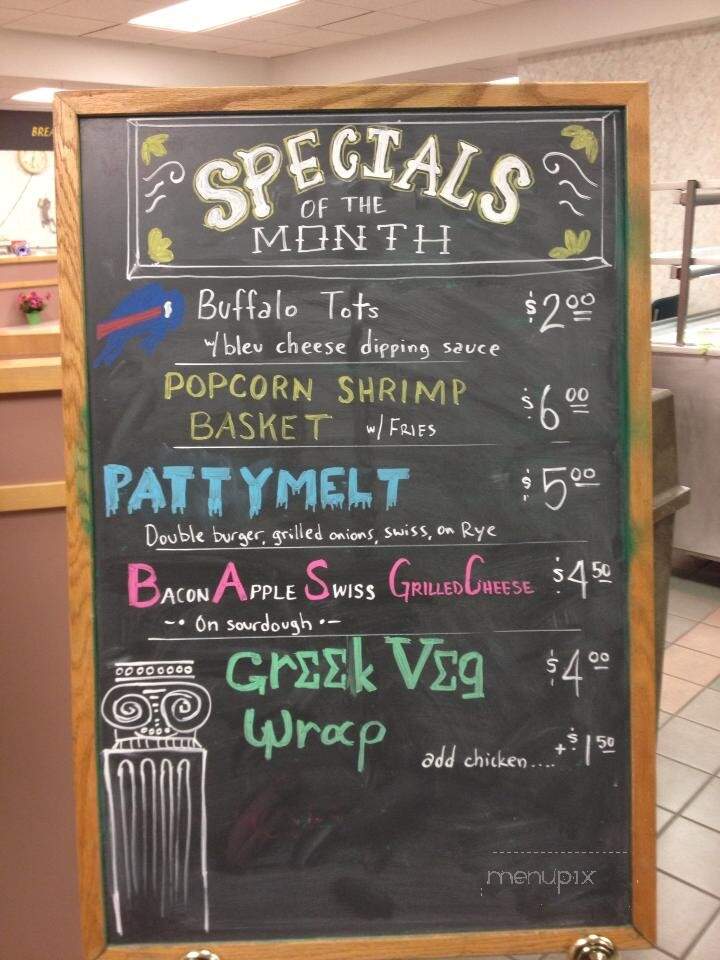 BREA
SPECIALS
OF THE
MONTH
Buffalo Tots $2.00
w/bleu cheese dipping sauce
POPCORN SHRIMP
BASKET w/ FRIES $6.00
PATTYMELT $5.00
Double burger, grilled onions, swiss, on Rye
BACON APPLE SWISS GRILLED CHEESE $4.50
-• On sourdough •-
GrΣΣk VΣg $4.00
Wrap
add chicken.... +$1.50
menupix